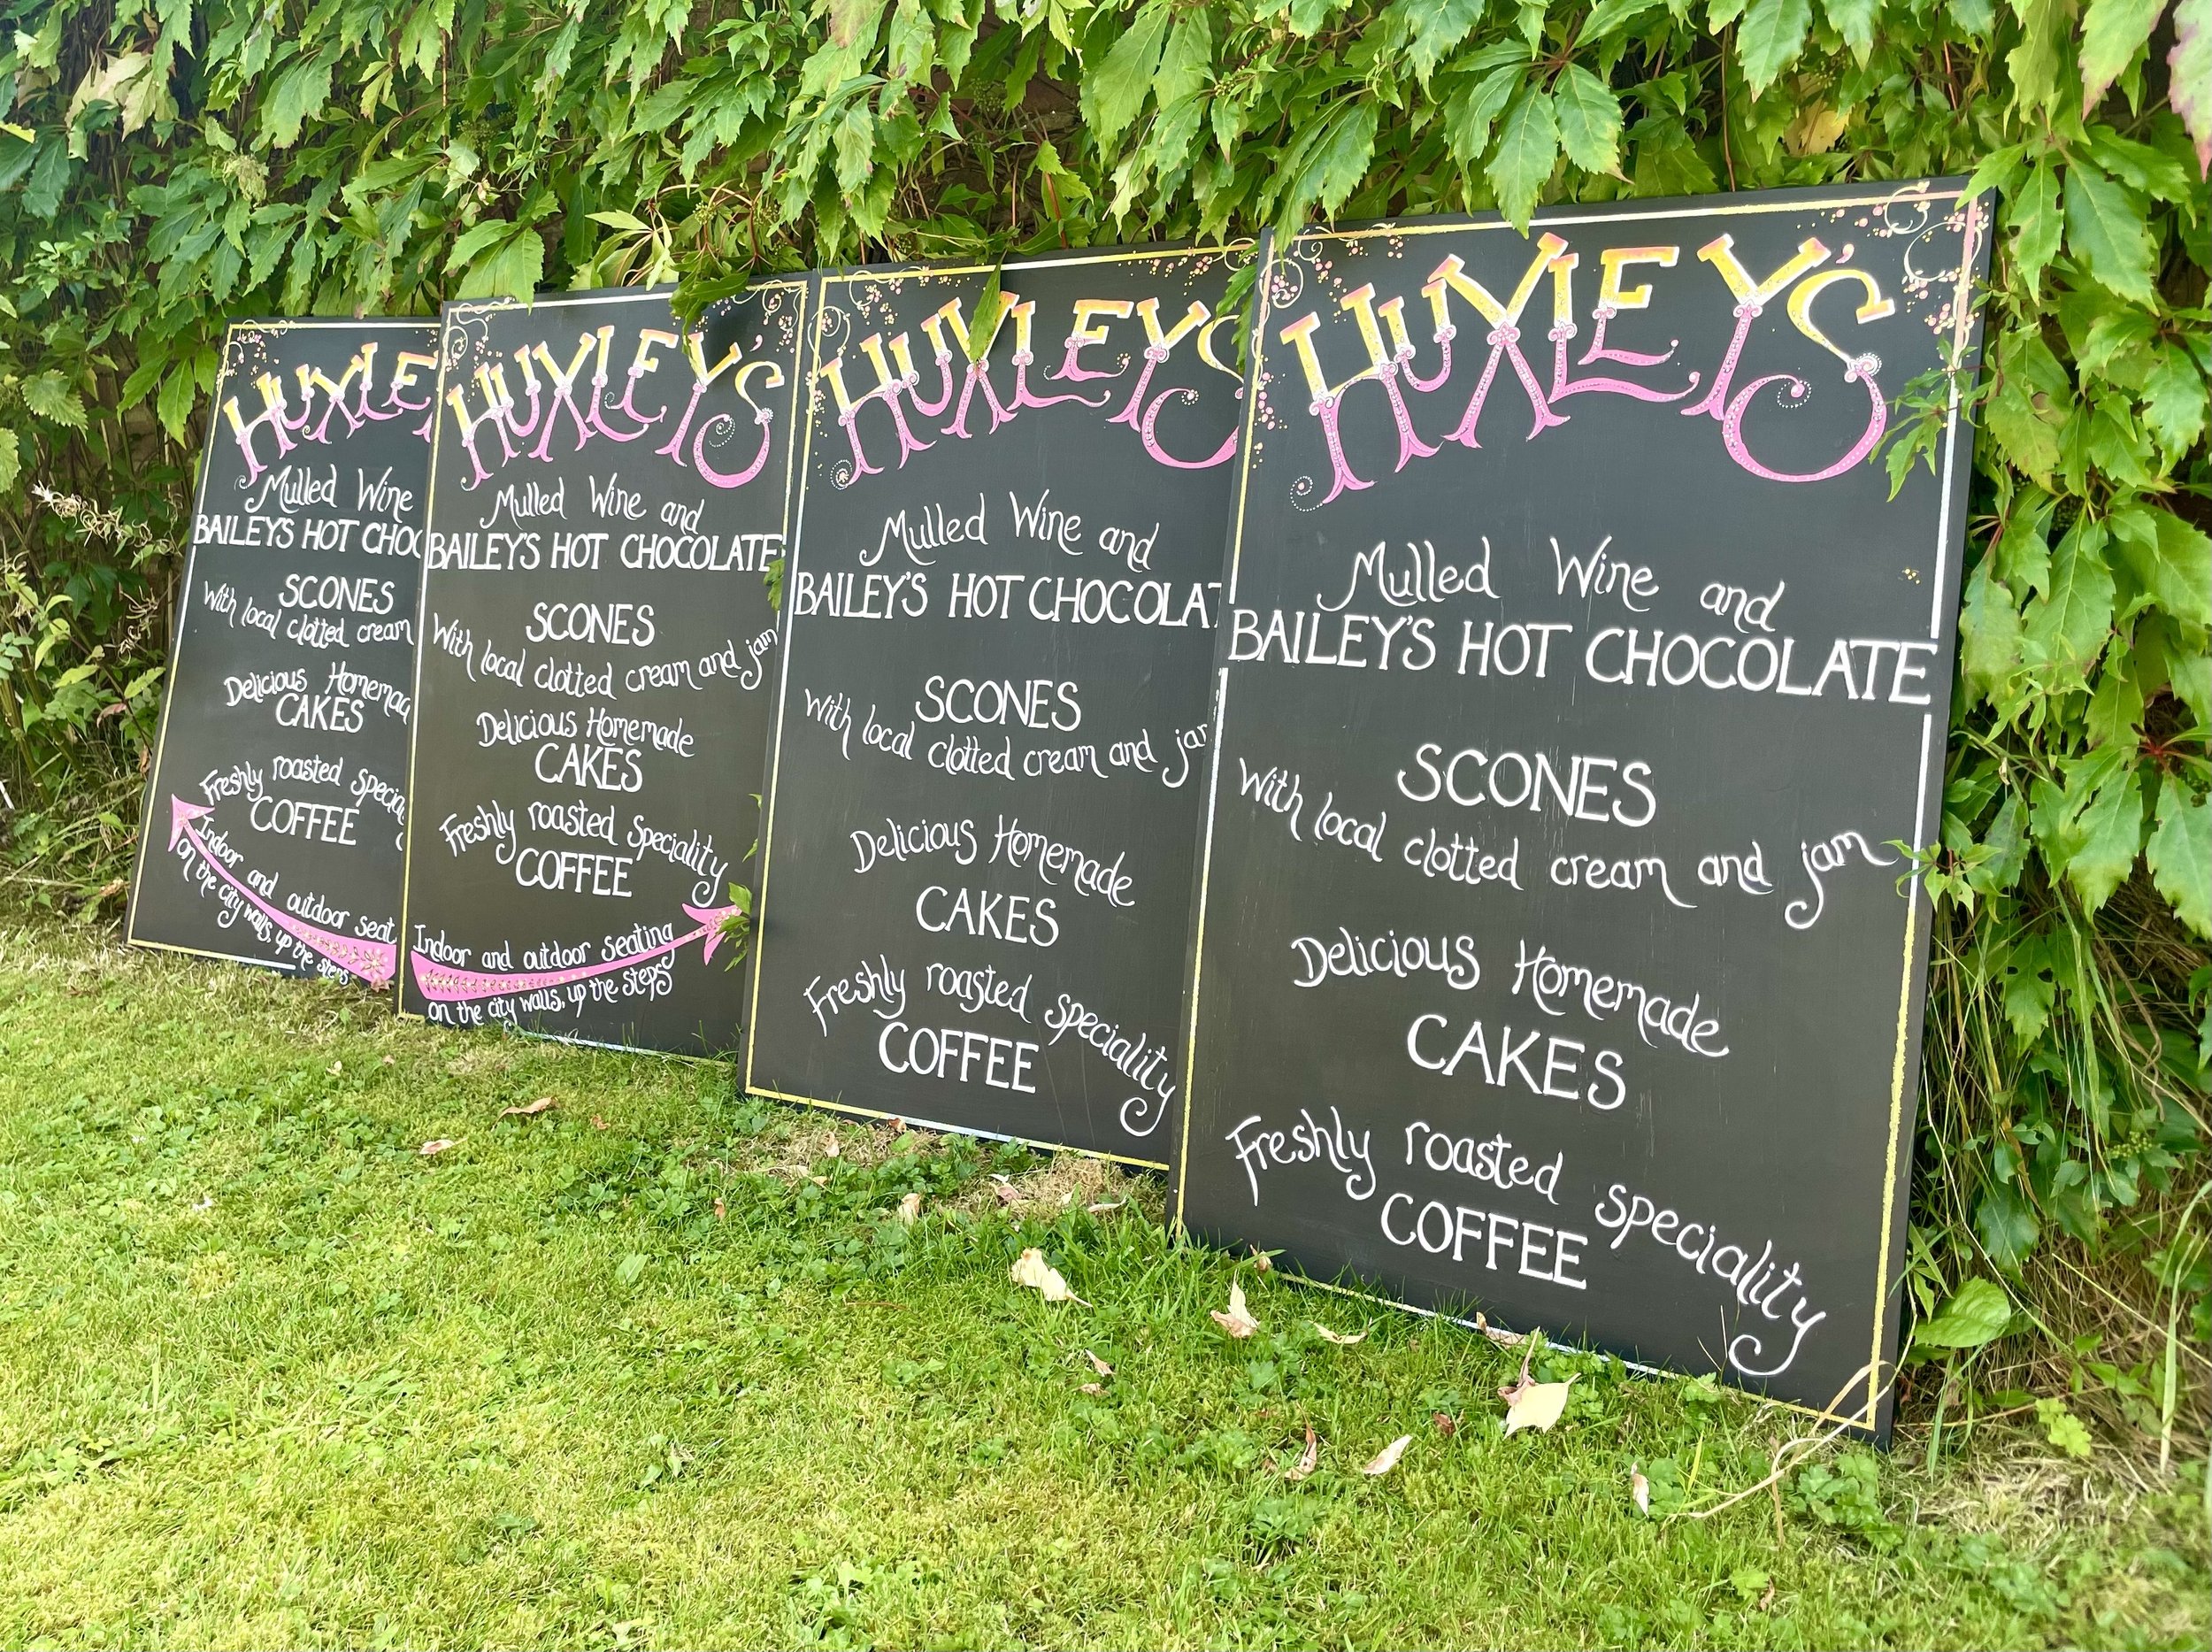 HUXLE
Mulled Wine
BAILEY'S HOT CHOC
SCONES
With local clotted cream
Delicious Homemad
CAKES
Freshly roasted specia
COFFEE
Indoor and outdoor seat
on the city walls, up the steps
HUXLEY'S
Mulled Wine and
BAILEY'S HOT CHOCOLATE
SCONES
With local clotted cream and jam
Delicious Homemade
CAKES
Freshly roasted speciality
COFFEE
Indoor and outdoor seating
on the city walls, up the steps
HUXLEYS
Mulled Wine and
BAILEY'S HOT CHOCOLAT
SCONES
With local clotted cream and jam
Delicious Homemade
CAKES
Freshly roasted speciality
COFFEE
HUXLEY'S
Mulled Wine and
BAILEY'S HOT CHOCOLATE
SCONES
With local clotted cream and jam
Delicious Homemade
CAKES
Freshly roasted speciality
COFFEE